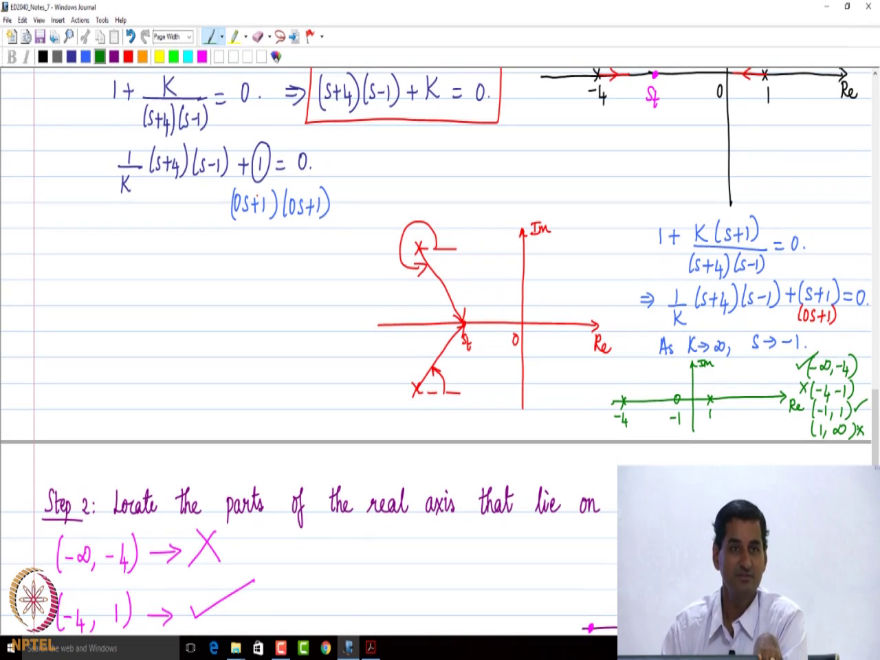 ED2040_Notes_7 - Windows Journal
File Edit View Insert Actions Tools Help
Page Width
B I
1 + K/((s+4)(s-1)) = 0. ⇒ (s+4)(s-1) + K = 0.
-4 sₜ 0 1 Re
1/K (s+4)(s-1) + 1 = 0.
(0s+1)(0s+1)
Im
0 Re
1 + K(s+1)/((s+4)(s-1)) = 0.
⇒ 1/K (s+4)(s-1) + (s+1) = 0.
(0s+1)
As K→∞, s→-1.
Im
-4 -1 1 Re
✓(-∞,-4)
×(-4,-1)
(-1,1)✓
(1,∞)×
Step 2: Locate the parts of the real axis that lie on
(-∞, -4) → X
(-4, 1) → ✓
NPTEL
the web and Windows